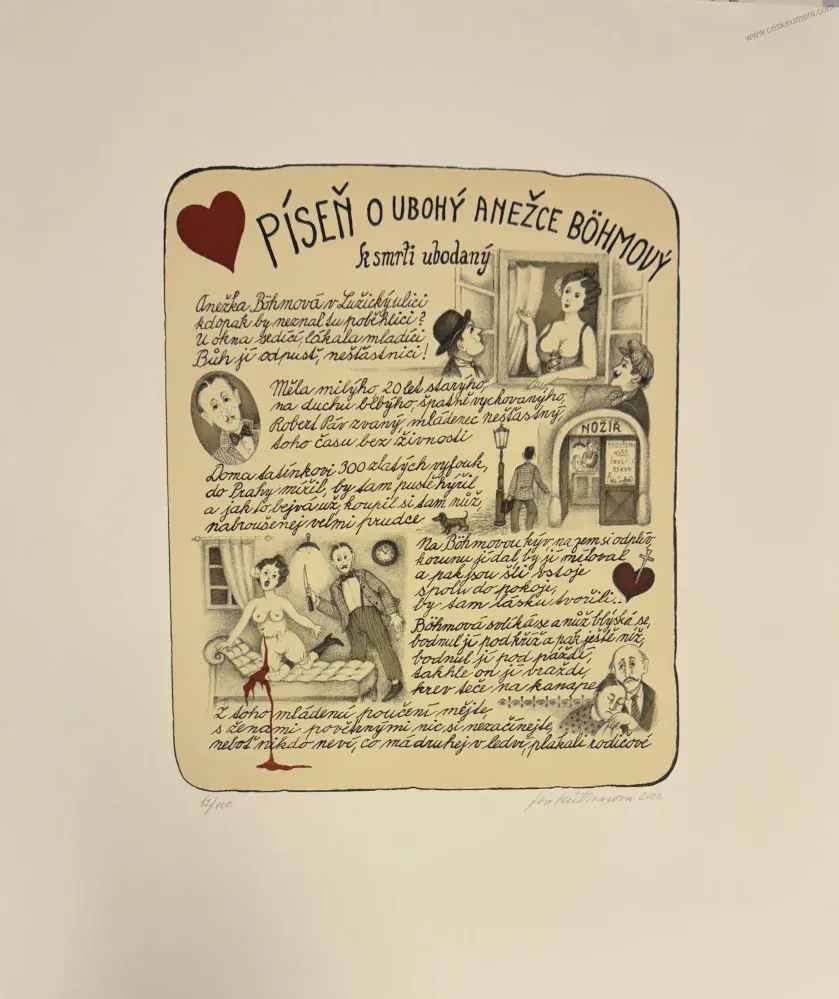 www.ceskeumeni.com
PÍSEŇ O UBOHÝ ANEŽCE BÖHMOVÝ
k smrti ubodaný
Anežka Böhmová v Lužický ulici
kdopak by neznal tu poběhlici?
U okna sedící, lákala mladíci,
Bůh jí odpusť, nešťastnici!
Měla milýho, 20 let starýho,
na duchu blbýho, špatně vychovanýho,
Robert Páv zvaný, mládenec nešťastný,
toho času bez živnosti
NOŽÍŘ
Doma tatínkovi 300 zlatých vyfouk,
do Prahy mířil, by tam pustě hýřil
a jak to bejvá už, koupil si tam nůž,
nabroušenej velmi prudce
Na Böhmovou kýv, na zem si odpliv
korunu jí dal, by jí miloval
a pak jsou šli vstoje
spolu do pokoje,
by tam lásku tvořili...
Böhmová svlíká se a nůž blýská se,
bodnul jí pod kříž a pak ještě níž,
bodnul jí pod paždí,
takhle on jí vraždí,
krev teče na kanape
Z toho mládenci poučení mějte,
s ženami povětrnými nic si nezačínejte,
neboť nikdo neví, co má druhej v ledví, plakali rodičové
12/100
2022